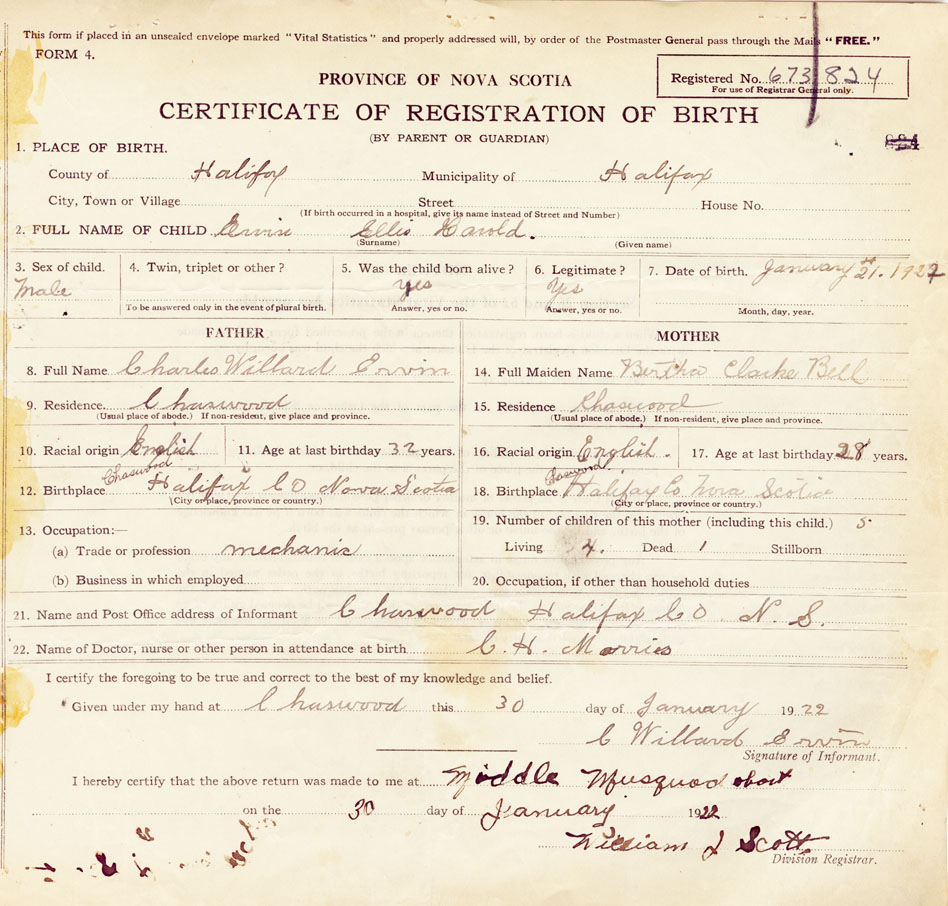 This form if placed in an unsealed envelope marked "Vital Statistics" and properly addressed will, by order of the Postmaster General pass through the Mails "FREE."
FORM 4.
Registered No. 673824
For use of Registrar General only.
PROVINCE OF NOVA SCOTIA
CERTIFICATE OF REGISTRATION OF BIRTH
(BY PARENT OR GUARDIAN)
824
1. PLACE OF BIRTH.
County of Halifax Municipality of Halifax
City, Town or Village Street House No.
(If birth occurred in a hospital, give its name instead of Street and Number)
2. FULL NAME OF CHILD Ervin Ellis Harold.
(Surname) (Given name)
3. Sex of child. 4. Twin, triplet or other? 5. Was the child born alive? 6. Legitimate? 7. Date of birth. January 21st. 1922
Male yes Yes
To be answered only in the event of plural birth. Answer, yes or no. Answer, yes or no. Month, day, year.
FATHER
8. Full Name Charles Willard Ervin
9. Residence Chaswood
(Usual place of abode.) If non-resident, give place and province.
10. Racial origin English 11. Age at last birthday 32 years.
Chaswood
12. Birthplace Halifax CO Nova Scotia
(City or place, province or country.)
13. Occupation:—
(a) Trade or profession mechanic
(b) Business in which employed
MOTHER
14. Full Maiden Name Bertha Clarke Bell
15. Residence Chaswood
(Usual place of abode.) If non-resident, give place and province.
16. Racial origin English. 17. Age at last birthday 28 years.
18. Birthplace Halifax Co Nova Scotia
(City or place, province or country.)
19. Number of children of this mother (including this child.) 5
Living 4. Dead 1 Stillborn
20. Occupation, if other than household duties
21. Name and Post Office address of Informant Chaswood Halifax CO. N. S.
22. Name of Doctor, nurse or other person in attendance at birth C. H. Morris
I certify the foregoing to be true and correct to the best of my knowledge and belief.
Given under my hand at Chaswood this 30 day of January 1922
C Willard Ervin
Signature of Informant.
I hereby certify that the above return was made to me at Middle Musquodoboit
on the 30 day of January 1922
William J Scott
Division Registrar.